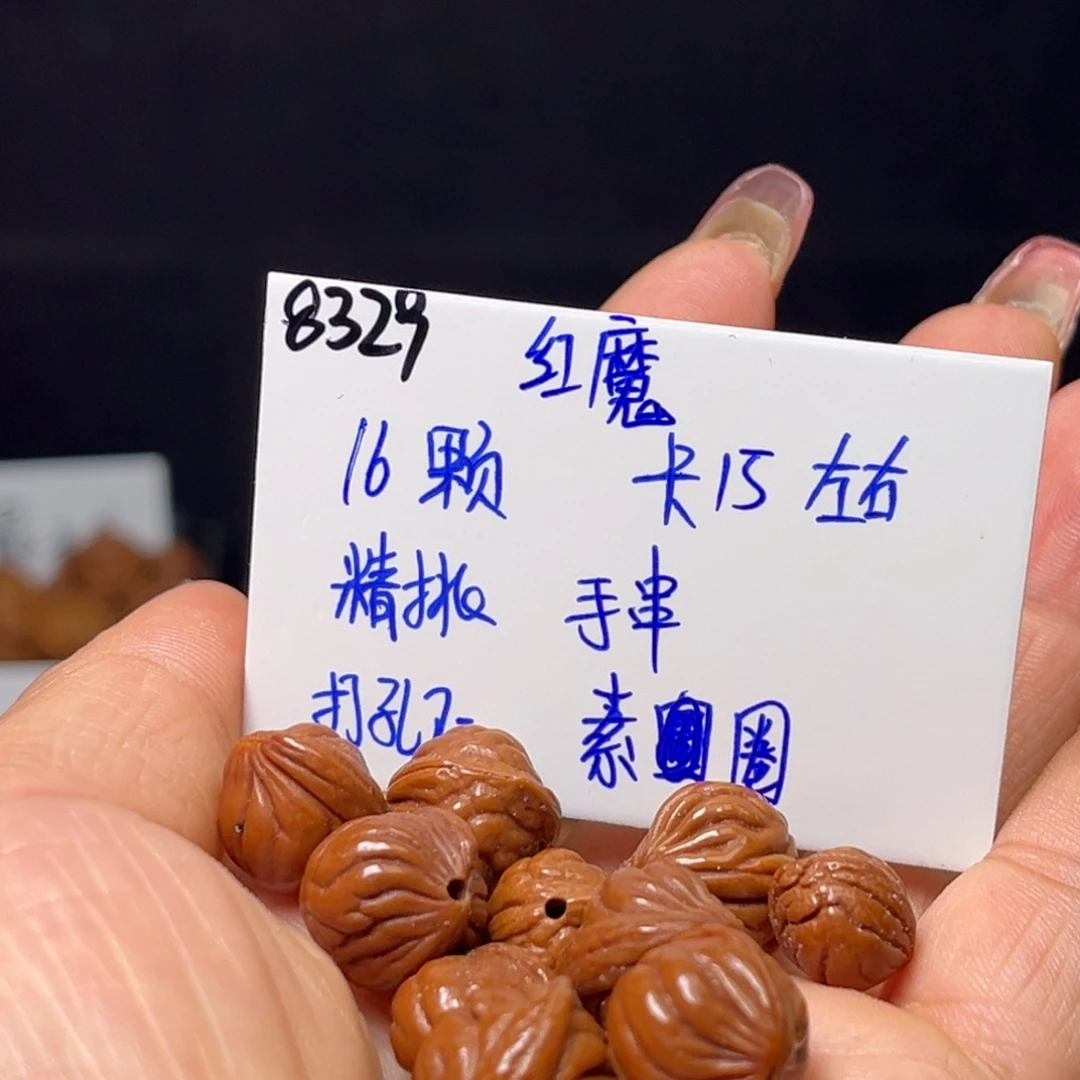 8329 红魔
16颗 卡15左右
精挑 手串
打孔 素圈